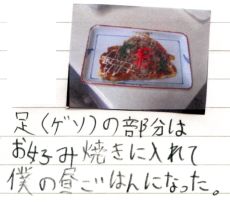 足(ゲソ)の部分は
お好み焼きに入れて
僕の昼ごはんになった。